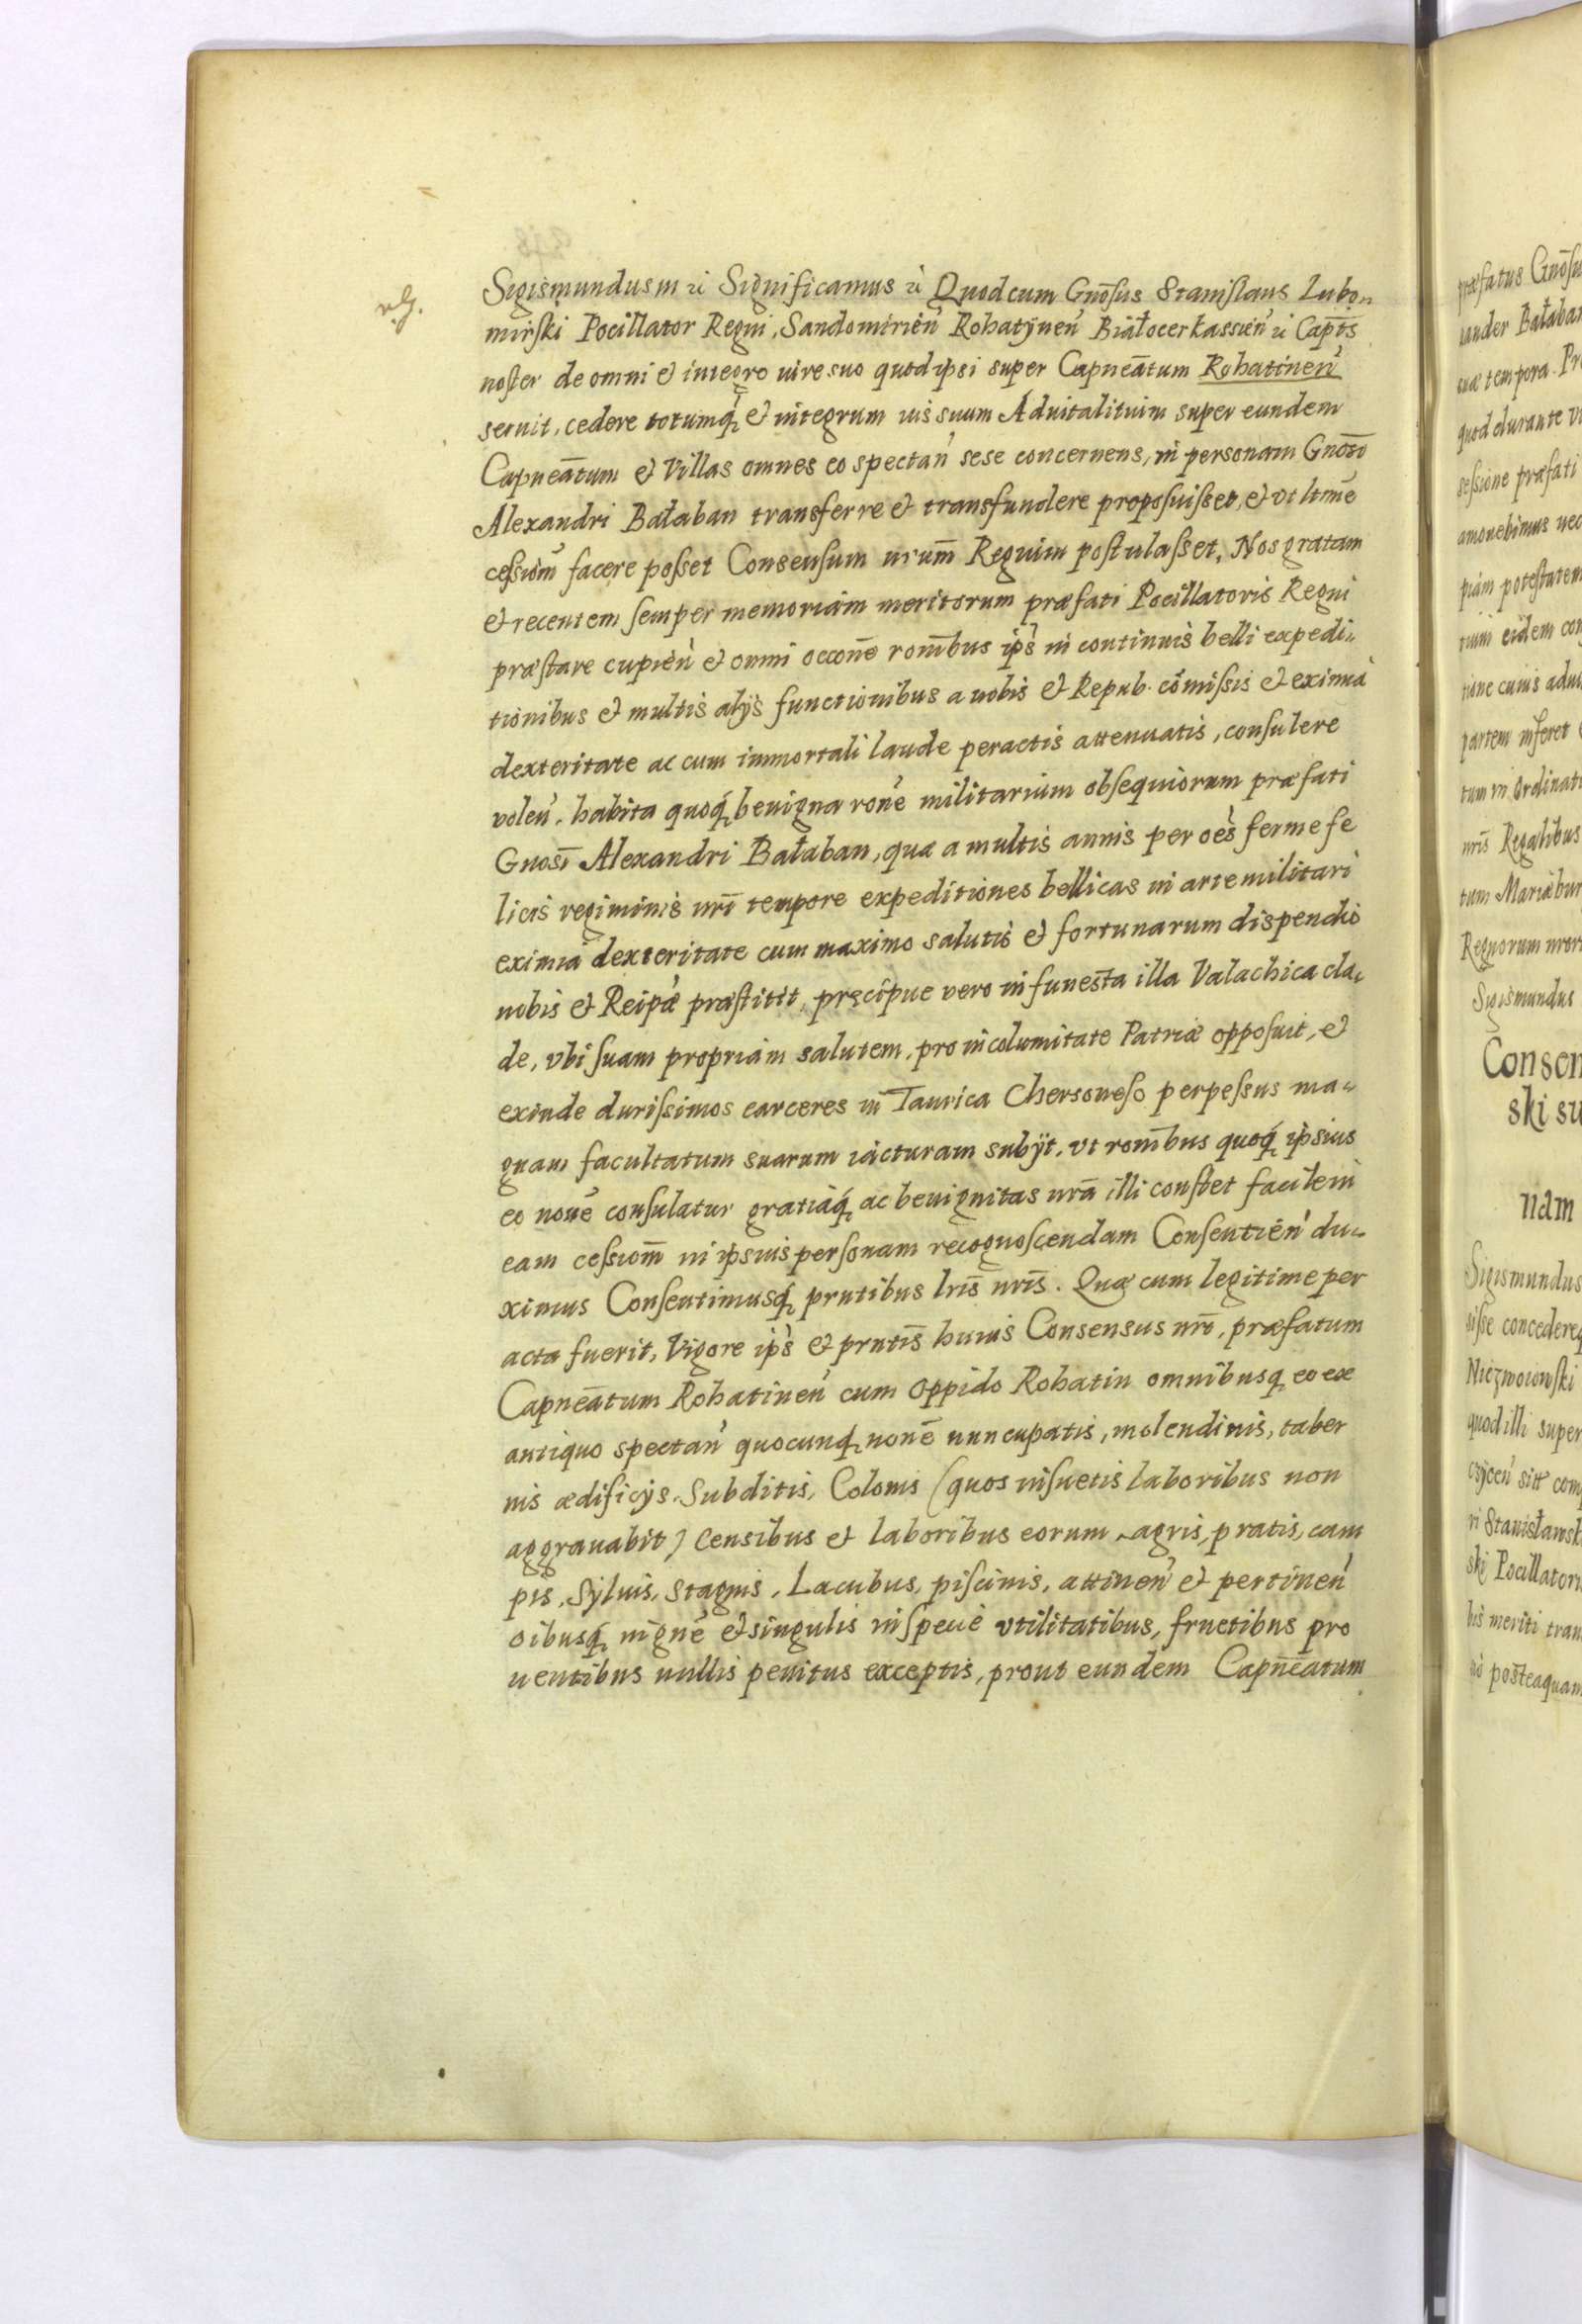 Sigismundus III etc Significamus etc Quod cum Gnōsus Stanislaus Lubo-
mirski Pocillator Regni, Sandomirień Rohatÿneń Białocerkassień etc Capt̄s
noster de omni et integro iure suo quod ipsi super Capneātum Rohatineń
seruit, cedere totumq́ et integrum ius suum Aduitalitium super eundem
Capneātum et Villas omnes eo spectań sese concernens, in personam Gnosī
Alexandri Bałaban transferre et transfundere proposuisset, et vt ltimē
cessiom̄ facere posset Consensum nrum̄ Regium postulasset, Nos gratam
et recentem semper memoriam meritorum præfati Pocillatoris Regni
præstare cupień et omni occone̅ rom̄bus ips̀ in continuis belli expedi-
tionibus et multis alÿs functionibus a nobis et Repub. com̄issis et eximia
dexteritate ac cum immortali laude peractis attenuatis, consulere
voleń, habita quoq́ benigna rone̅ militarium obsequiorum præfati
Gnosī Alexandri Bałaban, quæ a multis annis per oēs ferme fe
licis regiminis nrī tempore expeditiones bellicas in arte militari
eximia dexteritate cum maximo salutis et fortunarum dispendio
nobis et Reipæ̀ præstitit, pręcipue vero in funesta illa Valachica cla-
de, vbi suam propriam salutem, pro incolumitate Patriæ opposuit, et
exinde durissimos carceres in Taurica Chersoneso perpessus ma-
gnam facultatum suarum iacturam subÿt, vt rom̄bus quoq́ ipsius
eo noue̅ consulatur gratiaq́ ac benignitas nrā illi constet facilem
eam cessiom̄ in ipsius personam recognoscendam Consentień du-
ximus Consentimusq́ prntibus lris̄ nris̄. Quæ cum legitime per
acta fuerit, Vigore ips̀ et prntis̄ huius Consensus nrī, præfatum
Capneātum Rohatineń cum oppido Rohatin omnibusq́ eo ex
antiquo spectań quocunq́ none̅ nuncupatis, molendinis, taber
nis ædificÿs, Subditis, Colonis (quos insuetis laboribus non
aggrauabit) Censibus et laboribus eorum, agris, pratis, cam
pis, Syluis, Stagnis, Lacubus, piscinis, attineń et pertineń
oibusq́ in gne̅ et singulis in specie vtilitatibus, fructibus pro
uentibus nullis penitus exceptis, prout eundem Capneātum
præfatus Gnōsu
xander Bałaban
suæ tempora. Pro
quod durante vi
sessione præfati
amonebimus nec
piam potestatem
eidem con
tione cuius adui
partem inferet
tum in Ordinati
nris̄ Regalibus
tum Mariæbur
Regnorum nror
Sigismundus
Consen
ski su
nam
Sigismundus
sisse concedereq
Niezwoiowski
quod illi super
ri Stanisławsk
ski Pocillatori
bis meriti tran
posteaquam